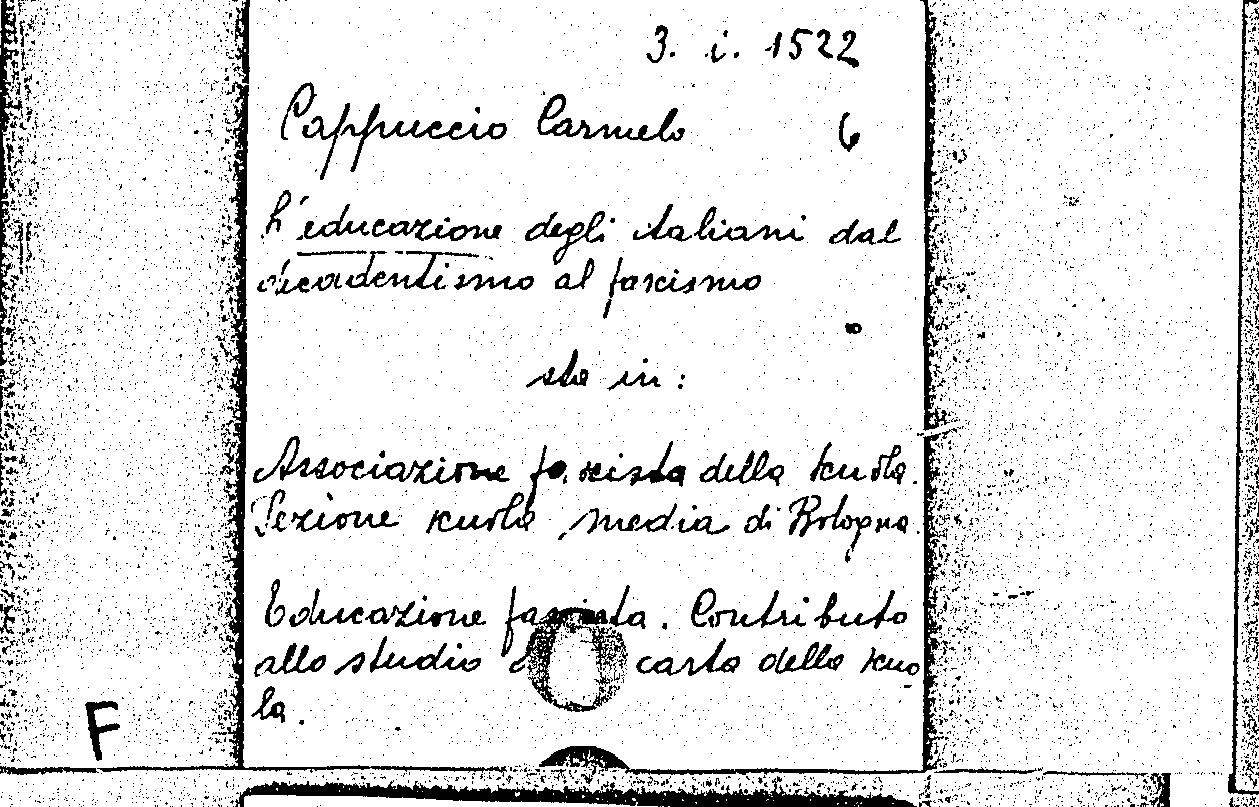 3. i. 1522
Cappuccio Carmelo 6
L'educazione degli italiani dal
decadentismo al fascismo
sta in:
Associazione fascista della scuola.
Sezione scuola media di Bologna.
Educazione fascista. Contributo
allo studio carta della scuo
la.
F